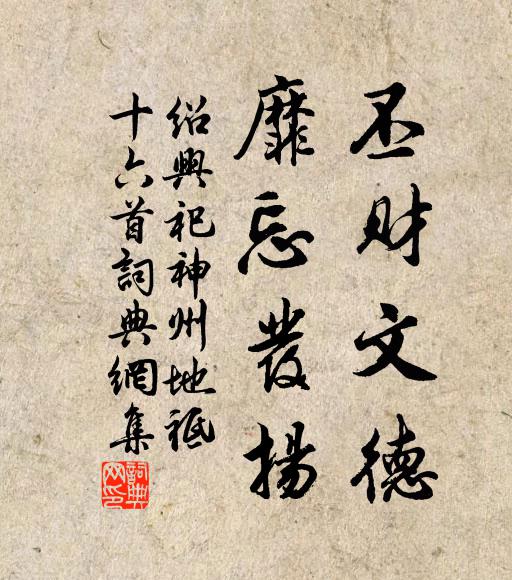 丕财文德
靡忘发揚
绍興祀神州地祇
十六首詞典網集
詞典网印